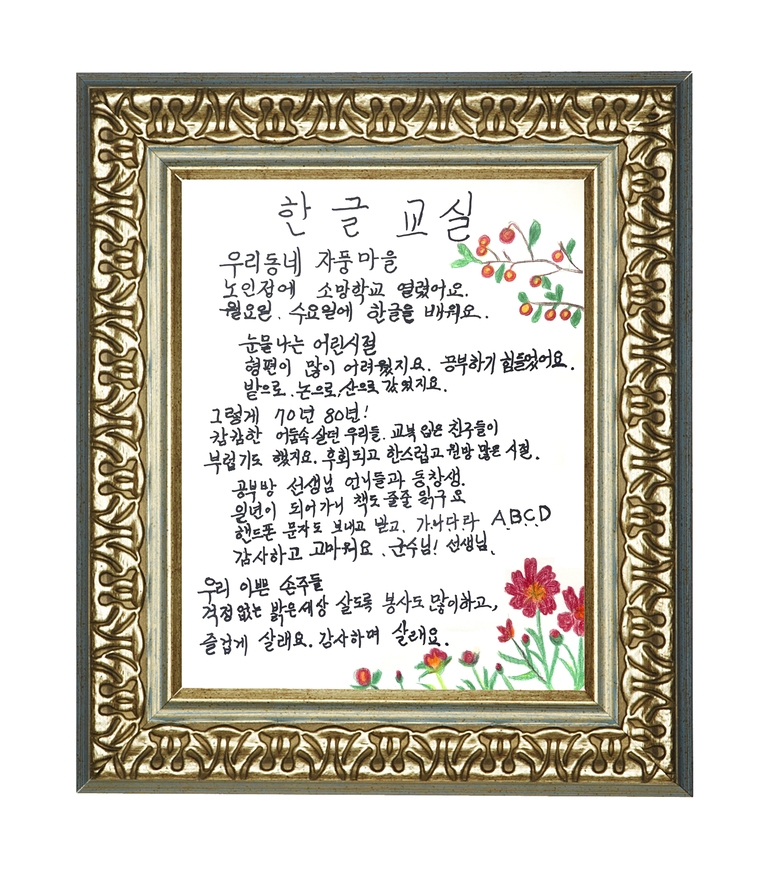 한글 교실
우리동네 자풍마을
노인정에 소망학교 열렸어요.
월요일. 수요일에 한글을 배워요.
눈물나는 어린시절
형편이 많이 어려웠지요. 공부하기 힘들었어요.
밭으로. 논으로, 산으로 갔었지요.
그렇게 70년 80년!
캄캄한 어둠속 살던 우리들. 교복 입은 친구들이
부럽기도 했지요. 후회되고 한스럽고 원망 많은 시절.
공부방 선생님 언니들과 동창생.
일년이 되어가니 책도 줄줄 읽구요
핸드폰 문자도 보내고 받고. 가나다라 ABCD
감사하고 고마워요. 군수님! 선생님.
우리 이쁜 손주들
걱정없는 밝은세상 살도록 봉사도 많이하고,
즐겁게 살래요. 감사하며 살래요.